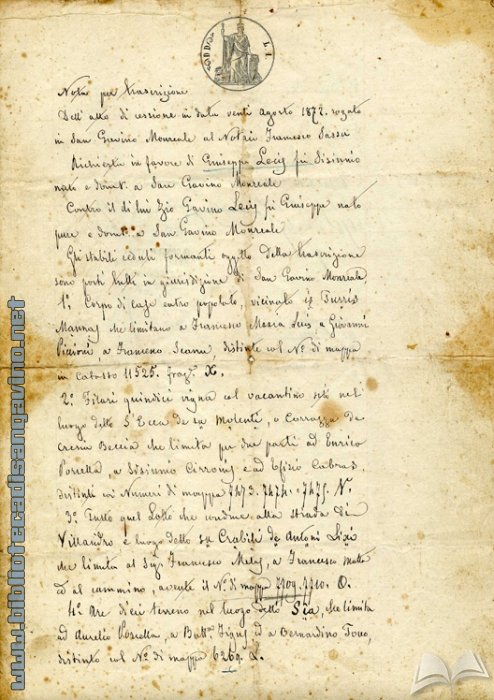 Nota per trascrizione
Dell'atto di cessione in data venti agosto 1872 rogato
in San Gavino Monreale al Notaio Francesco Sassu
Richiesta in favore di Giuseppe Lecis fu Sisinnio
nati e domt. a San Gavino Monreale
Contro il di lui Zio Gavino Lecis fu Giuseppe nato
pure e domt. a San Gavino Monreale
Gli stabile ceduti formanti oggetto della trascrizione
sono posti tutti in giurisdizione di San Gavino Monreale,
1º Corpo di case entro popolato, vicinato is Turris
Mannas che limitano a Francesco Massa Lecis a Giovanni
Piccioni, a Francesco Scanu, distinte col Nº di mappa
in Catasto 11525. fraz. X.
2º Filari quindici vigna al vacantino sito nel
luogo detto S'Ecca de sa Molenti, o Corrazza de
cresia Beccia che limita per due parti ad Enrico
Porcella, a Sisinnio Cirronis e ad Efisio Cabras.
distinti coi Numeri di mappa 7473. 7474. 7475. N.
3º Tutto quel Lotto che condue alla strada di
Villandro e luogo detto sa Crabili de Antoni Lixi
che limita al Sigr Francesco Melis, a Francesco Matta
ed al cammino, avente il Nº di mappa 7709. 7710. O.
4º Are dieci terreno nel luogo detto Sia, che limita
ad Aurelio Porcella, a Battª ed a Bernardino Tocco,
distinto col Nº di mappa 6269. L.
www.bibliotecadisangavino.net